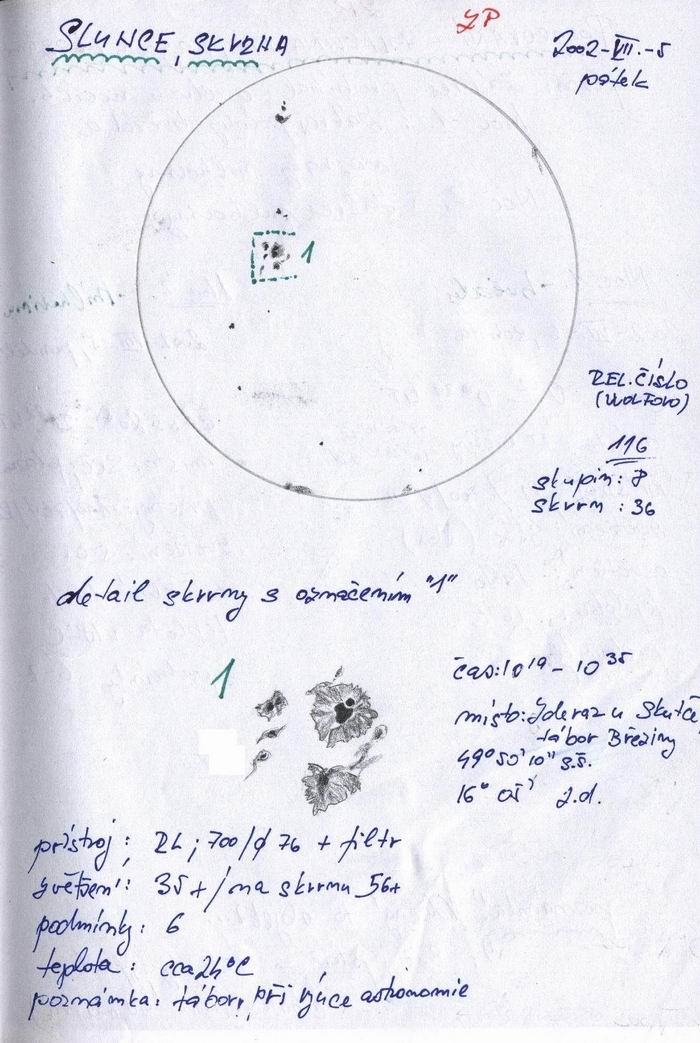 SLUNCE, SKVRNA
ZP
2002-VII.-5
pátek
1
REL. ČÍSLO
(WOLFOVO)
116
skupin: 8
skvrn: 36
detail skvrny s označením "1"
1
čas: 10 19 - 10 35
místo: Zderaz u Skutče,
tábor Březiny
49° 50' 10" s.š.
16° 05' z.d.
přístroj: RL; 700/φ 76 + filtr
zvětšení: 35x / na skvrnu 56x
podmínky: 6
teplota: cca 24°C
poznámka: tábor, při výuce astronomie